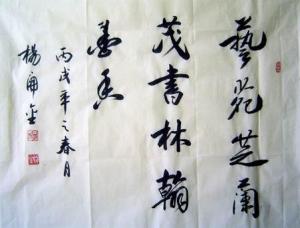 藝苑芝蘭
茂書林翰
墨香
丙戌年之春月
楊